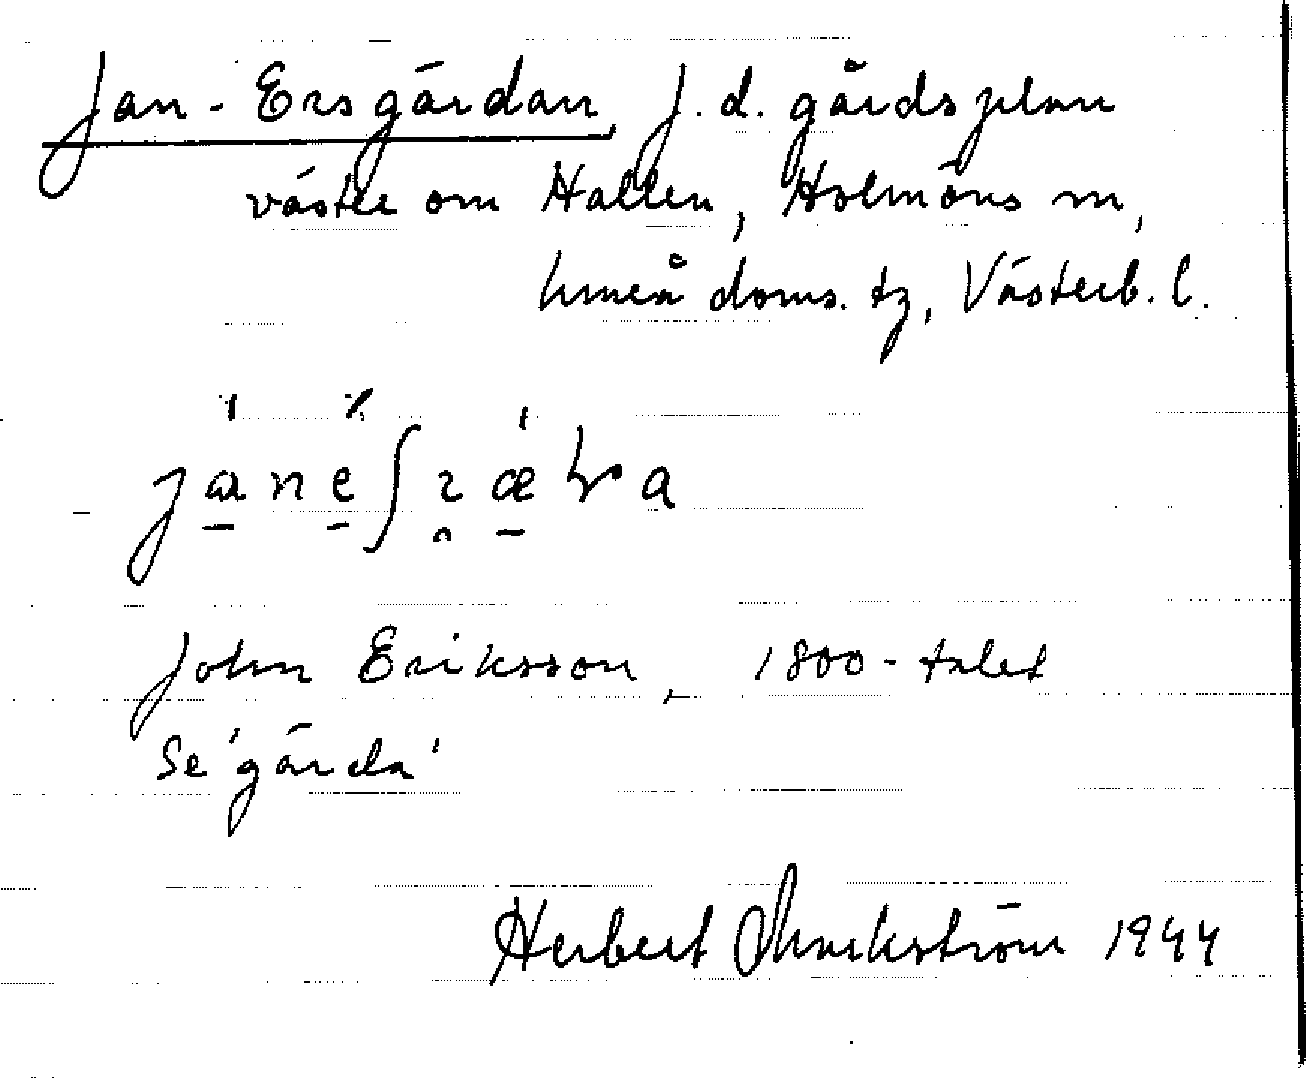 Jan-Ersgårdan, f.d. gårdsplan
väster om Hallen, Holmöns sn,
Umeå doms. tg, Västerb. l.
John Eriksson, 1800-talet
Se 'gärda'
Herbert Markström 1944